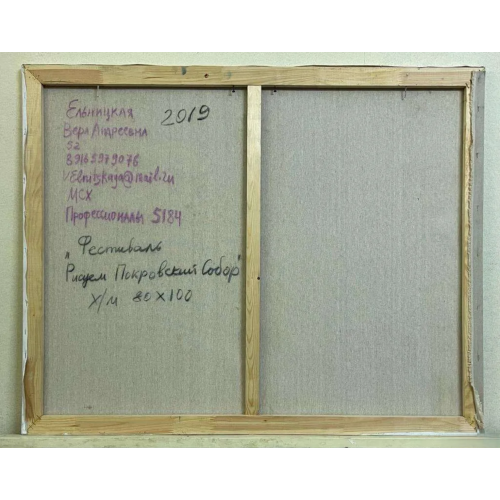 Ельницкая
Вера Андреевна
52
89165979076
VElnitskaya@mail.ru
МСХ
Профессионалы 5184
2019
"Фестиваль
Рисуем Покровский Собор"
Х/М 80х100